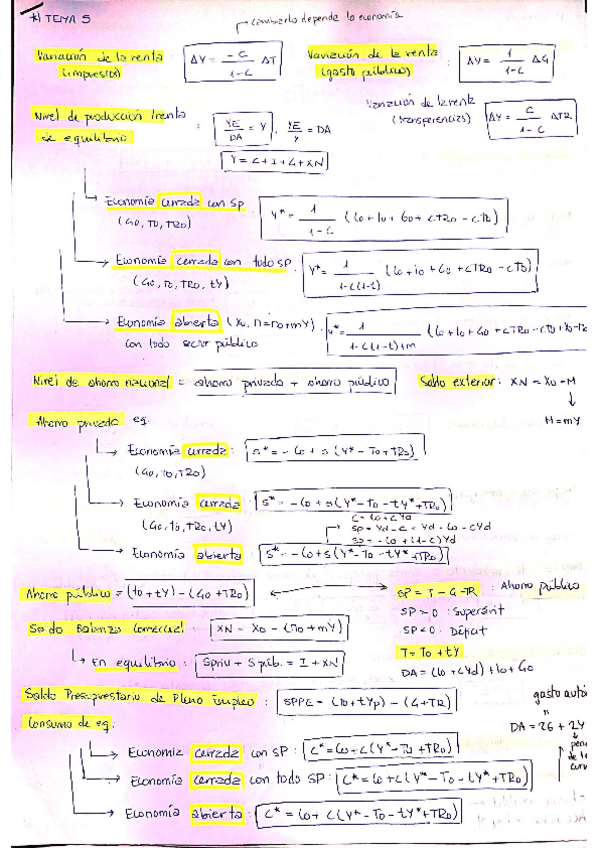 *) TEMA 5
cambiarlo depende la economía
Variación de la renta (impuestos) : ΔY = -C / 1-C ΔT
Variación de la renta (gasto público) : ΔY = 1 / 1-C ΔG
Variación de la renta (transferencias) ΔY = C / 1-C ΔTR
Nivel de producción / renta de equilibrio : YE / DA = Y, YE / Y = DA
Y = C + I + G + XN
Economía cerrada con SP : Y* = 1 / 1-C (Co + Io + Go + CTRo - CTo)
(Go, To, TRo)
Economía cerrada con todo SP : Y* = 1 / 1-C(1-t) (Co + Io + Go + CTRo - CTo)
(Go, To, TRo, tY)
Economía abierta (Xo, M=mo+mY) : Y* = 1 / 1-C(1-t)+m (Co + Io + Go + CTRo - CTo + Xo - mo
con todo sector público
Nivel de ahorro nacional = ahorro privado + ahorro público
Saldo exterior : XN = Xo - M
M = mY
Ahorro privado eq.
Economía cerrada : S* = -Co + s (Y* - To + TRo)
(Go, To, TRo)
Economía cerrada : S* = -Co + s (Y* - To - tY* + TRo)
(Go, To, TRo, tY)
C = Co + CYd
Sp = Yd - C = Yd - Co - CYd
Sp = -Co + (1-C)Yd
Economía abierta : S* = -Co + s (Y* - To - tY* + TRo)
Ahorro público = (to + tY) - (Go + TRo)
SP = T - G - TR : Ahorro público
SP > 0 : Superávit
SP < 0 : Déficit
T = To + tY
DA = (Co + CYd) + Io + Go
Saldo Balanza Comercial : XN = Xo - (mo + mY)
En equilibrio : Spriv + Spúb. = I + XN
Saldo Presupuestario de Pleno Empleo : SPPE = (to + tYp) - (G + TR)
gasto autó
DA = 26 + 2Y
pen
de l
curv
Consumo de eq:
Economía cerrada con SP : C* = Co + C (Y* - To + TRo)
Economía cerrada con todo SP : C* = Co + C (Y* - To - tY* + TRo)
Economía abierta : C* = Co + C (Y* - To - tY* + TRo)